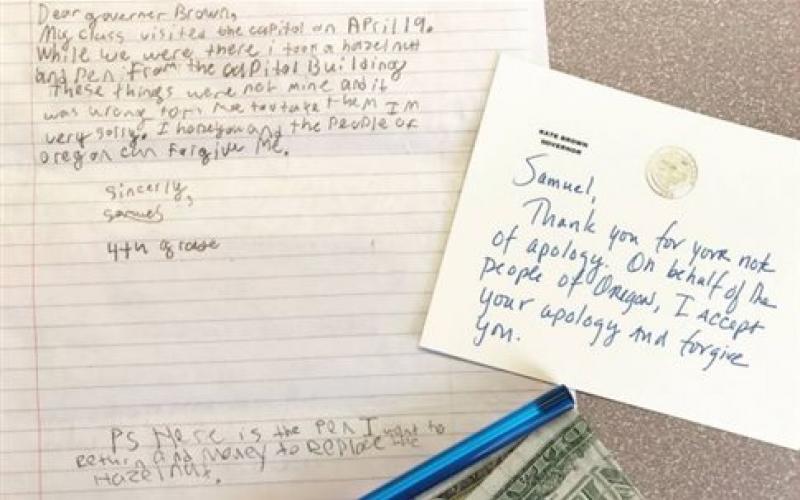 Dear governer Brown,
My class visited the capital on April 19.
While we were there i took a hazel nut
and pen from the capital Building
These things were not mine and it
was wrong for me to take them I'm
very sorry. I hope you and the people of
oregon can forgive me.
sincerly,
samuel
4th grade
PS Here is the pen I want to
return and money to Replace the
Hazelnut.
KATE BROWN
GOVERNOR
Samuel,
Thank you for your note
of apology. On behalf of the
people of Oregon, I accept
your apology and forgive
you.